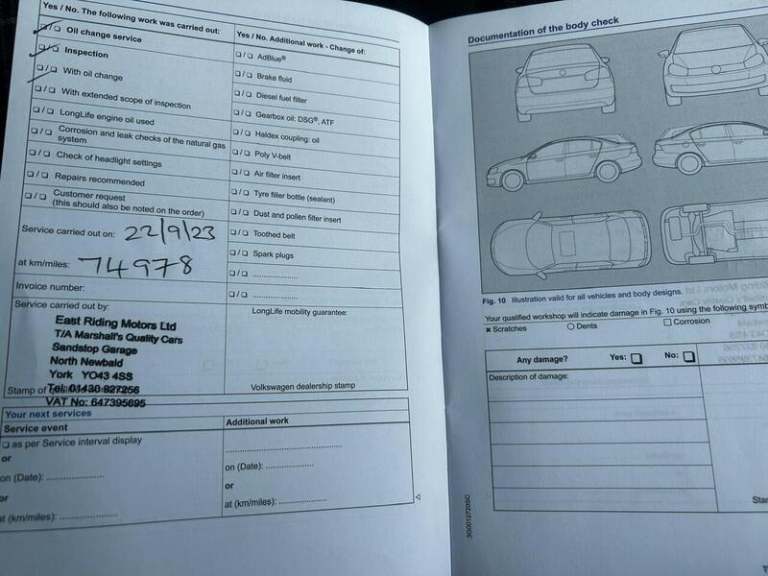 Yes / No. The following work was carried out:
❏/❏ Oil change service
❏/❏ Inspection
❏/❏ With oil change
❏/❏ With extended scope of inspection
❏/❏ LongLife engine oil used
❏/❏ Corrosion and leak checks of the natural gas
system
❏/❏ Check of headlight settings
❏/❏ Repairs recommended
❏/❏ Customer request
(this should also be noted on the order)
Service carried out on: 22/9/23
at km/miles: 74978
Invoice number:
Service carried out by:
East Riding Motors Ltd
T/A Marshall's Quality Cars
Sandstop Garage
North Newbald
York YO43 4SS
Stamp of
Tel: 01430 827256
VAT No: 647395695
Yes / No. Additional work - Change of:
❏/❏ AdBlue®
❏/❏ Brake fluid
❏/❏ Diesel fuel filter
❏/❏ Gearbox oil: DSG®, ATF
❏/❏ Haldex coupling: oil
❏/❏ Poly V-belt
❏/❏ Air filter insert
❏/❏ Tyre filler bottle (sealant)
❏/❏ Dust and pollen filter insert
❏/❏ Toothed belt
❏/❏ Spark plugs
❏/❏ ....................
❏/❏ ....................
LongLife mobility guarantee:
Volkswagen dealership stamp
Your next services
Service event
❏ as per Service interval display
or
on (Date): ....................
or
at (km/miles): ....................
Additional work
........................................
on (Date): ................
or
at (km/miles): ................
Documentation of the body check
Fig. 10 Illustration valid for all vehicles and body designs.
Your qualified workshop will indicate damage in Fig. 10 using the following symb
✖ Scratches ○ Dents ❏ Corrosion
Any damage? Yes: ❏ No: ❏
Description of damage:
Star